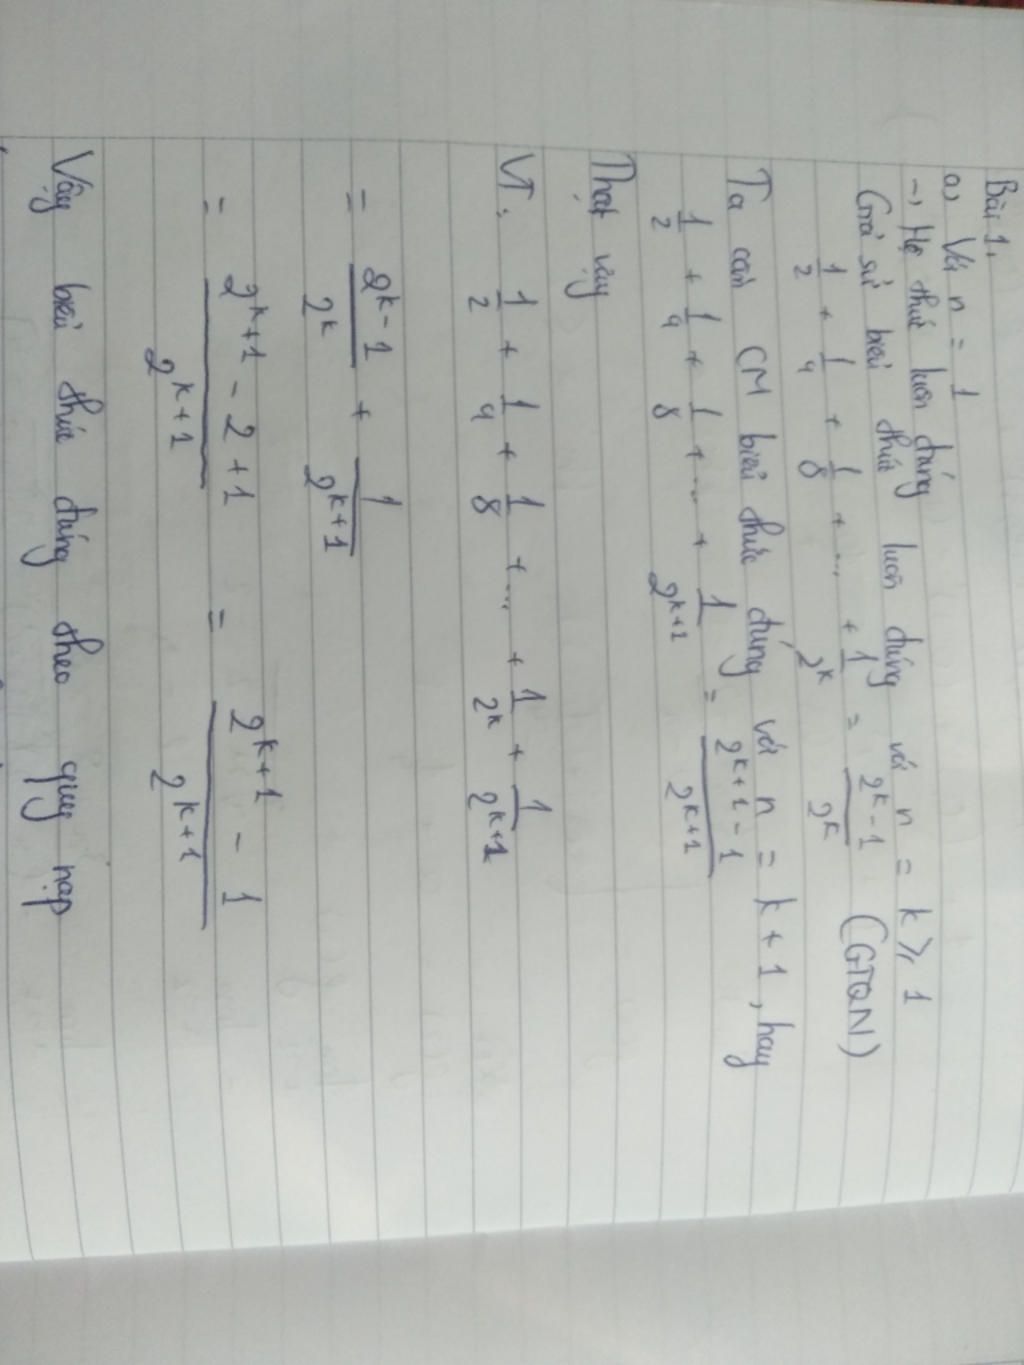 Bài 1.
a, Với n = 1
→ Hệ thức luôn đúng
Giả sử biểu thức luôn đúng với n = k ≥ 1
1/2 + 1/4 + 1/8 + ... + 1/2^k = (2^k - 1)/2^k (GTQN)
Ta cần CM biểu thức đúng với n = k + 1, hay
1/2 + 1/4 + 1/8 + ... + 1/2^(k+1) = (2^(k+1) - 1)/2^(k+1)
Thật vậy
VT: 1/2 + 1/4 + 1/8 + ... + 1/2^k + 1/2^(k+1)
= (2^k - 1)/2^k + 1/2^(k+1)
= (2^(k+1) - 2 + 1)/2^(k+1) = (2^(k+1) - 1)/2^(k+1)
Vậy biểu thức đúng theo quy nạp